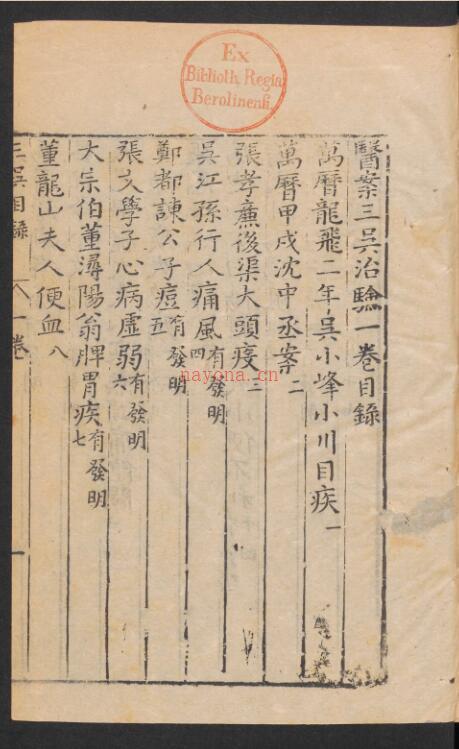 Ex
Biblioth. Regia
Berolinensi.
醫案三吳治驗一卷目錄
萬曆龍飛二年吳小峰小川目疾一
萬曆甲戌沈中丞案二
張孝廉後渠大頭疫三
吳江孫行人痛風四有發明
鄭都諫公子痘五有發明
張文學子心病虛弱六有發明
大宗伯董潯陽翁脾胃疾七有發明
董龍山夫人便血八
三吳目錄 一卷 一
nayona.cn